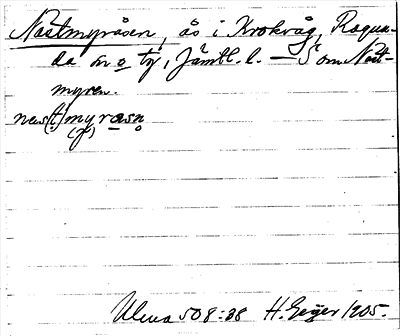 Nästmyråsen, ås i Krokvåg, Ragun-
da sn o ty, Jämtl. l. — S om Näst-
myren.
nes(t)myråsn
(y)
Ulma 508:38 H. Geijer 1905.